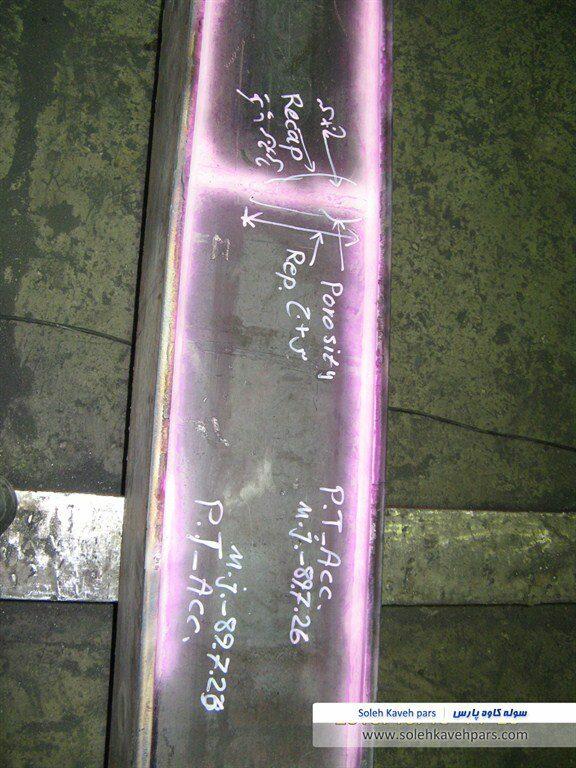 Recap
Porosity
Rep.
P.T-Acc.
m.j.-89.7.26
m.j.-89.7.28
P.T-Acc.
Soleh Kaveh pars | سوله کاوه پارس
www.solehkavehpars.com